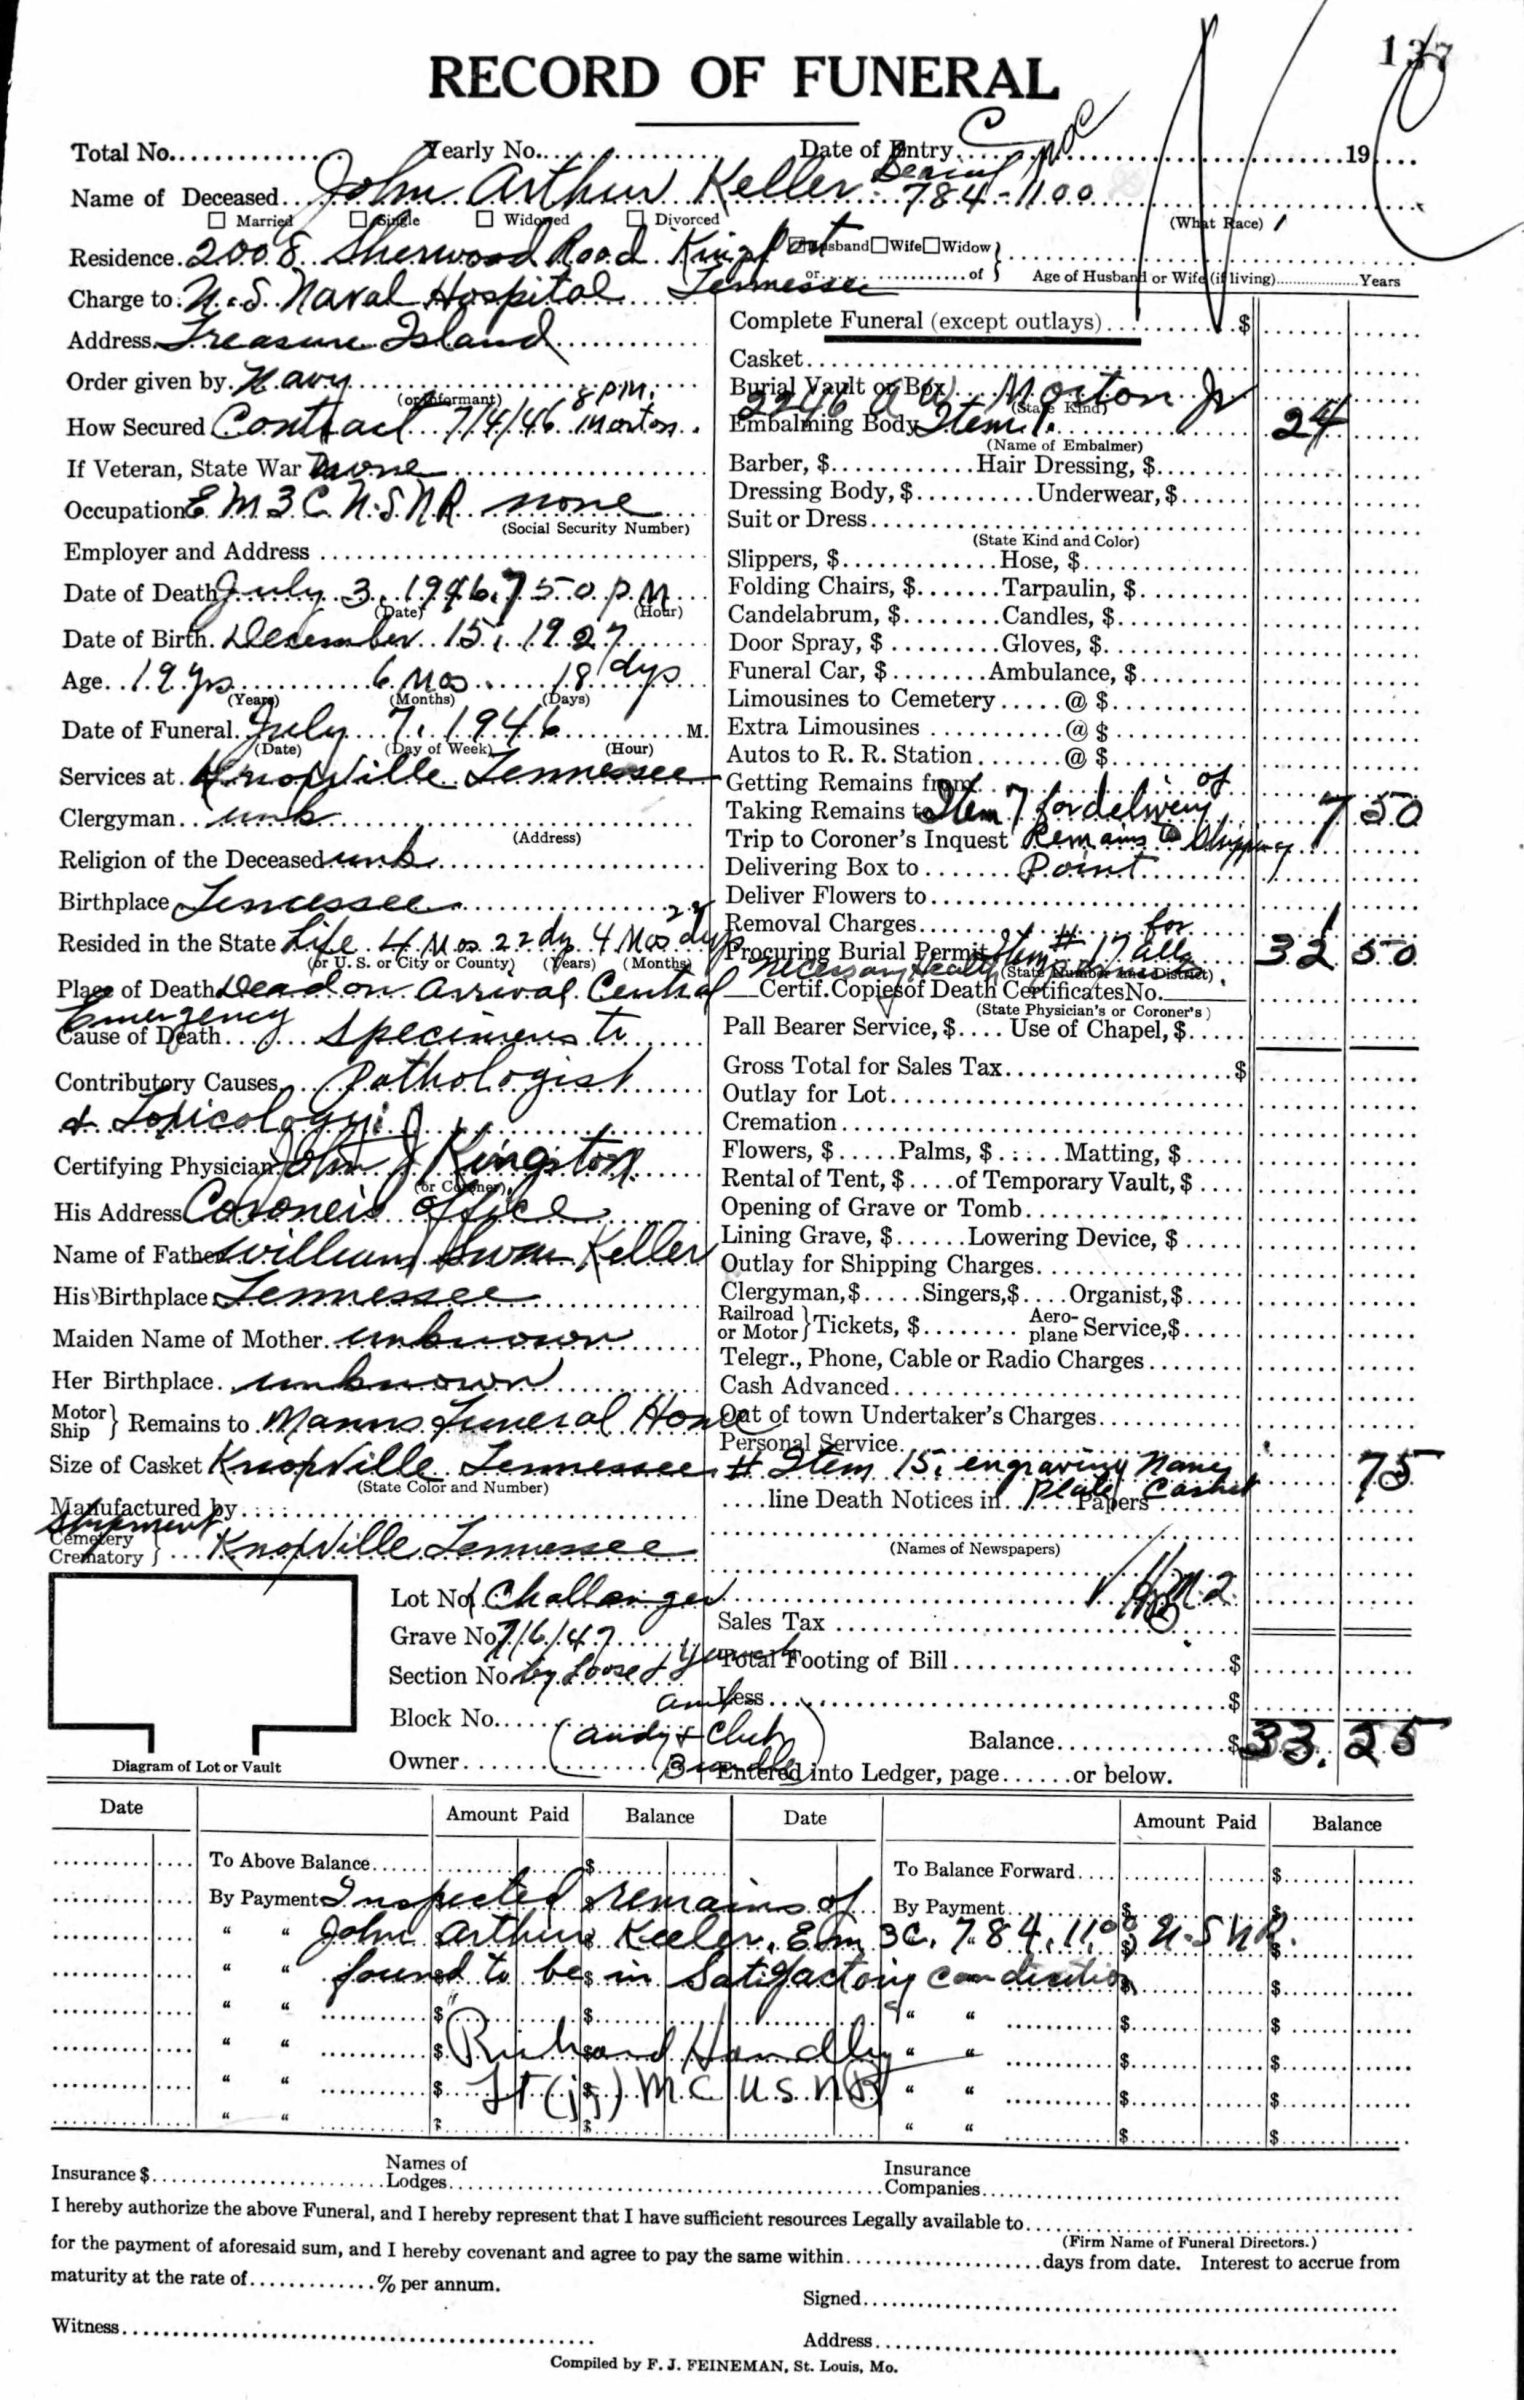 137
RECORD OF FUNERAL
Total No. Yearly No. Date of Entry 19
Name of Deceased John Arthur Keller Serial 784-1100
Married Single Widowed Divorced (What Race)
Residence 2008 Sherwood Road Kingsport Husband Wife Widow
or of Age of Husband or Wife (if living) Years
Charge to U.S. Naval Hospital Tennessee
Address Treasure Island
Order given by Navy 8 P.M.
(or Informant)
How Secured Contract 7/4/46 Morton
If Veteran, State War None
Occupation E M 3 C U.S.N.R. none
(Social Security Number)
Employer and Address
Date of Death July 3, 1946. 7 50 P.M
(Date) (Hour)
Date of Birth December 15, 1927
Age 19 yrs 6 Mos 18 dys
(Years) (Months) (Days)
Date of Funeral July 7, 1946 M.
(Date) (Day of Week) (Hour)
Services at Knoxville Tennessee
Clergyman unk
(Address)
Religion of the Deceased unk
Birthplace Tennessee
Resided in the State Life 4 Mos 22 dy 4 Mos 22 dys
(or U. S. or City or County) (Years) (Months)
Place of Death Dead on Arrival Central
Emergency
Cause of Death Specimens to
Contributory Causes Pathologist
& Toxicology
Certifying Physician John J Kingston
(or Coroner)
His Address Coroner's Office
Name of Father William Keller
His Birthplace Tennessee
Maiden Name of Mother unknown
Her Birthplace unknown
Motor Ship } Remains to Manns Funeral Home
Size of Casket Knoxville Tennessee
(State Color and Number)
Manufactured by
Shipment
Cemetery Crematory } Knoxville Tennessee
Lot No. Challenger
Grave No. 7/6/47
Section No. by Loose &
Block No. amb
(Andy & Club
Owner Bundle)
Diagram of Lot or Vault
Complete Funeral (except outlays) $
Casket
Burial Vault or Box
2246 Morton Jr
(State Kind)
Embalming Body Item 1. 24
(Name of Embalmer)
Barber, $ Hair Dressing, $
Dressing Body, $ Underwear, $
Suit or Dress
(State Kind and Color)
Slippers, $ Hose, $
Folding Chairs, $ Tarpaulin, $
Candelabrum, $ Candles, $
Door Spray, $ Gloves, $
Funeral Car, $ Ambulance, $
Limousines to Cemetery @ $
Extra Limousines @ $
Autos to R. R. Station @ $
Getting Remains from of
Taking Remains to Item 7 for delivery 7 50
Trip to Coroner's Inquest Remains to Shipping
Delivering Box to Point
Deliver Flowers to
Removal Charges for
Procuring Burial Permit Item # 17 all 1 50
32
necessary Health
(State Number and District)
Certif. Copies of Death Certificates No.
(State Physician's or Coroner's)
Pall Bearer Service, $ Use of Chapel, $
Gross Total for Sales Tax $
Outlay for Lot
Cremation
Flowers, $ Palms, $ Matting, $
Rental of Tent, $ of Temporary Vault, $
Opening of Grave or Tomb
Lining Grave, $ Lowering Device, $
Outlay for Shipping Charges
Clergyman, $ Singers, $ Organist, $
Railroad or Motor } Tickets, $ Aero-plane Service, $
Telegr., Phone, Cable or Radio Charges
Cash Advanced
Out of town Undertaker's Charges
Personal Service
# Item 15, engraving Name 75
line Death Notices in Plate Papers Casket
(Names of Newspapers)
Sales Tax
Total Footing of Bill $
Less $
Balance $ 33.25
Entered into Ledger, page or below.
Date Amount Paid Balance Date Amount Paid Balance
To Above Balance $ To Balance Forward $
By Payment Inspected remains of By Payment $
John Arthur Keller, Em 3C, 784.1100 U.S N R.
found to be in Satisfactory condition
Richard Handley
Lt (jg) M C U.S N R
Insurance $ Names of Lodges Insurance Companies
I hereby authorize the above Funeral, and I hereby represent that I have sufficient resources Legally available to
(Firm Name of Funeral Directors.)
for the payment of aforesaid sum, and I hereby covenant and agree to pay the same within days from date. Interest to accrue from
maturity at the rate of % per annum.
Signed
Witness
Address
Compiled by F. J. FEINEMAN, St. Louis, Mo.